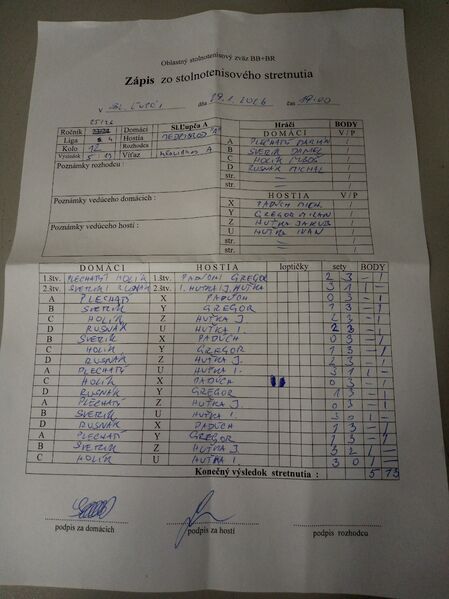 Oblastný stolnotenisový zväz BB+BR
Zápis zo stolnotenisového stretnutia
v SL. ĽUPČI dňa 29.1.2026 čas 17:00
25/26
Ročník Domáci SL.Ľupča A
Liga 4 Hostia
Kolo 12 Rozhodca
Výsledok 5:13 Víťaz A
Poznámky rozhodcu :
Poznámky vedúceho domácich :
Poznámky vedúceho hostí :
Hráči BODY
DOMÁCI V / P
A PLECHATÝ MARIÁN /
B SVERIK DANIEL /
C HOLÍK ĽUBOŠ /
D RUSNÁK MICHAL /
str. — /
str. — /
HOSTIA V / P
X PADÚCH MICH. /
Y GREGOR MILAN /
Z HUŤKA JAKUB /
U HUŤKA IVAN /
str. /
str. /
DOMÁCI HOSTIA loptičky sety BODY
1.štv. PLECHATÝ HOLÍK 1.štv. PADÚCH GREGOR 2 3 – 1
2.štv. SVERIK RUSNÁK 2.štv. I. HUŤKA J. HUŤKA 3 1 1 –
A PLECHATÝ X PADÚCH 0 3 – 1
B SVERIK Y GREGOR 1 3 – 1
C HOLÍK Z HUŤKA J. 2 3 – 1
D RUSNÁK U HUŤKA I. 2 3 – 1
B SVERIK X PADÚCH 0 3 – 1
C HOLÍK Y GREGOR 1 3 – 1
D RUSNÁK Z HUŤKA J. 2 3 – 1
A PLECHATÝ U HUŤKA I. 3 1 1 –
C HOLÍK X PADÚCH 0 3 – 1
D RUSNÁK Y GREGOR 1 3 – 1
A PLECHATÝ Z HUŤKA J. 3 – 1
B SVERIK U HUŤKA I. 3 0 1 –
D RUSNÁK X PADÚCH 1 3 – 1
A PLECHATÝ Y GREGOR 1 3 – 1
B SVERIK Z HUŤKA J 3 2 1 –
C HOLÍK U HUŤKA I. 3 0 1 –
Konečný výsledok stretnutia : 5 13
podpis za domácich podpis za hostí podpis rozhodcu